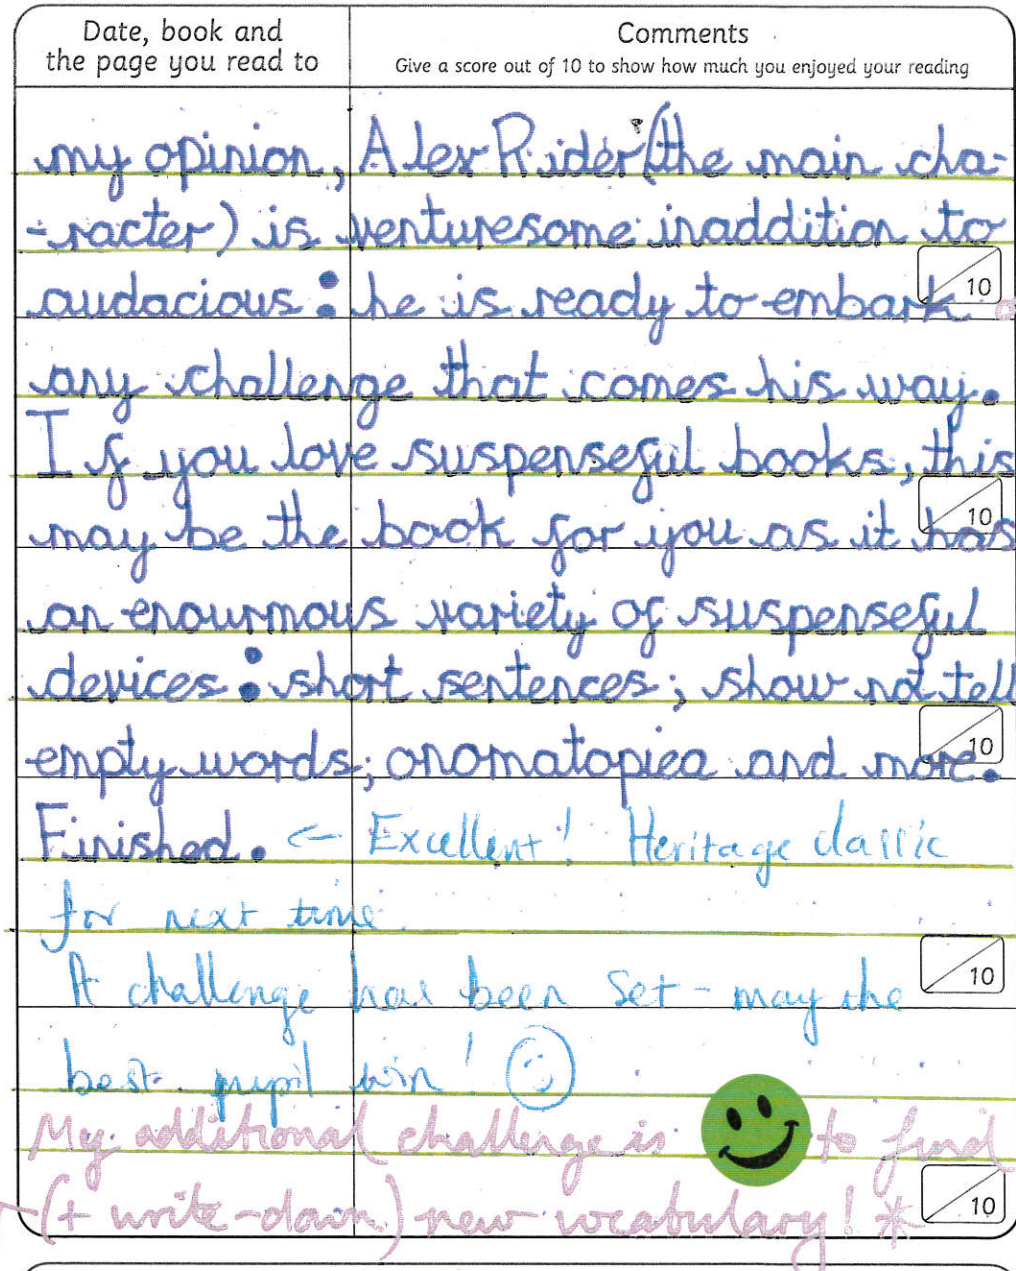 Date, book and
the page you read to
Comments
Give a score out of 10 to show how much you enjoyed your reading
my opinion, Alex Rider (the main cha-
-racter) is venturesome inaddition to
audacious : he is ready to embark
10
any challenge that comes his way.
If you love suspenseful books, this
may be the book for you as it has
10
an enourmous variety of suspenseful
devices : short sentences ; show not tell
empty words ; onomatopiea and more.
10
Finished. ← Excellent! Heritage classic
for next time.
A challenge has been set - may the
10
best pupil win! ☺
My additional challenge is to find
(+ write-down) new vocabulary! *
10